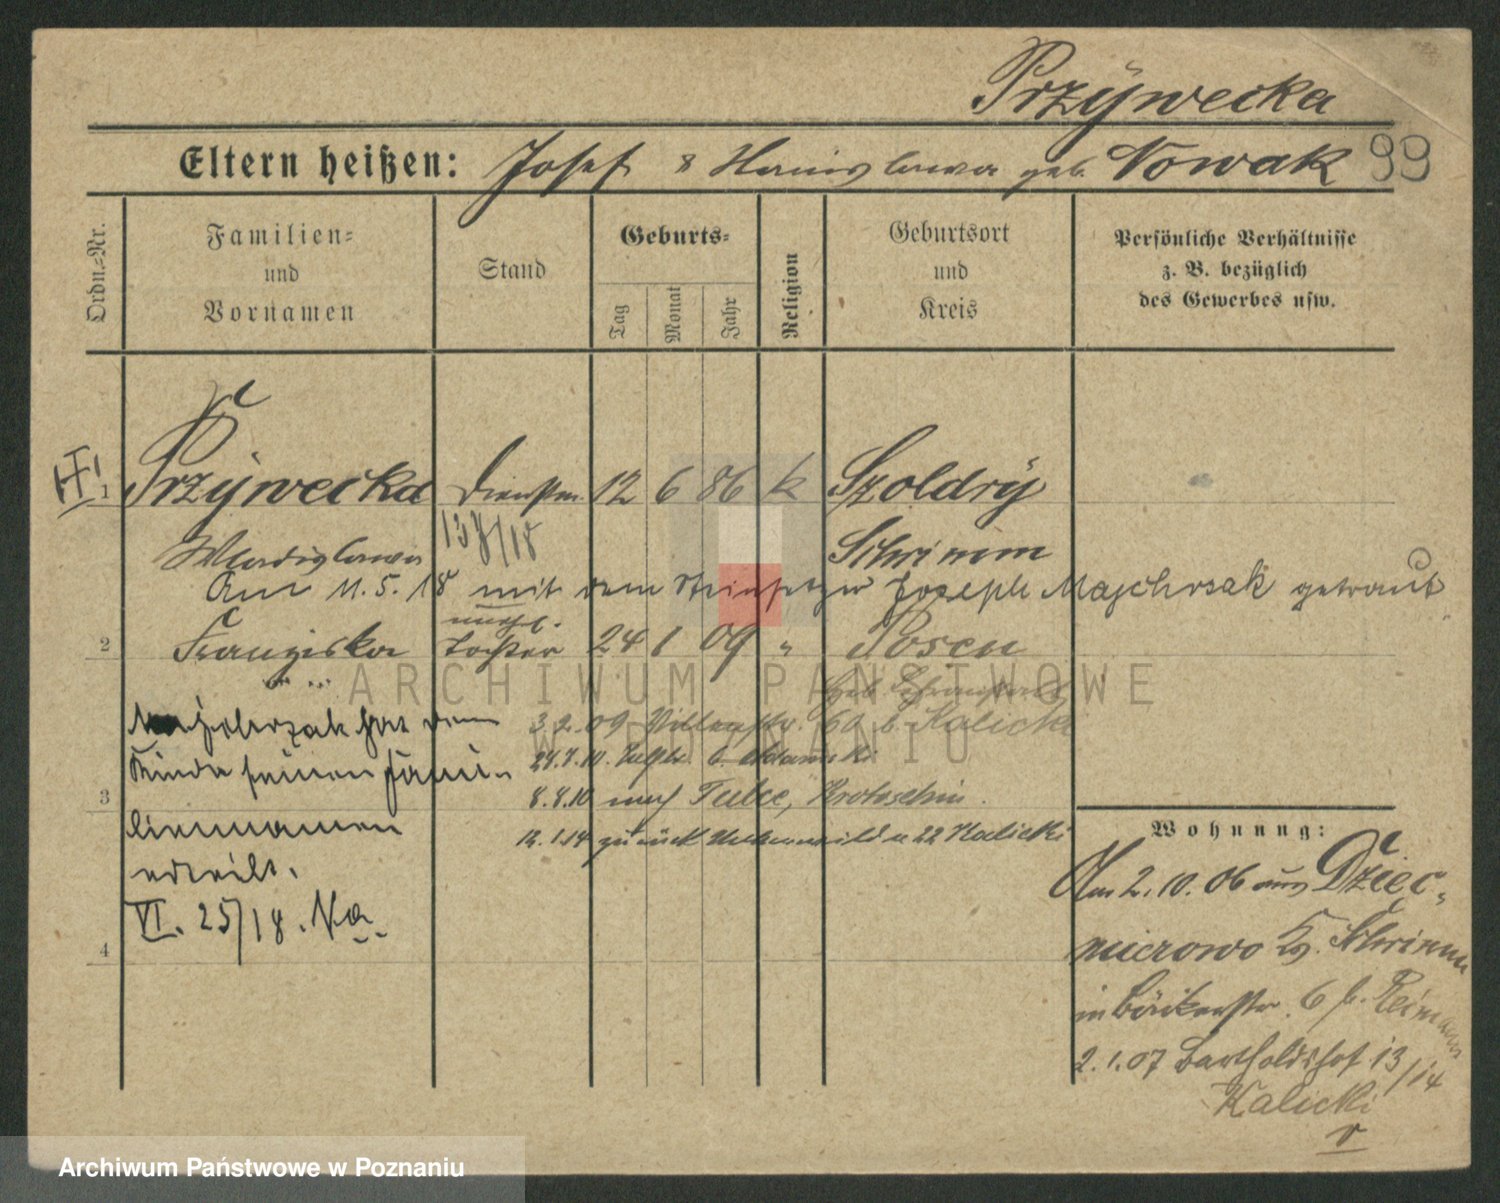 Przÿwecka
Eltern heißen: Josef & Stanislawa geb. Nowak 99
Ordn.-Nr.
Familien-
und
Vornamen
Stand
Geburts-
Tag
Monat
Jahr
Religion
Geburtsort
und
Kreis
Persönliche Verhältnisse
z. B. bezüglich
des Gewerbes usw.
1 Przÿwecka Dienstm. 12 6 86 k Szoldrÿ
137/18
Wladislawa Schrimm
Am 11.5.18 mit dem Steinsetzer Joseph Majchrzak getraut
unehl.
2 Franziska Tochter 24 1 09 " Posen
ARCHIWUM PAŃSTWOWE
W POZNANIU
Majchrzak hat dem
Kinde seinen Fami-
liennamen
erteilt.
VI. 25/18. Na.
3.2.09 60 b. Kalicki
24.7.10
8.8.10 nach Krotoschin.
12.1.14 zurück 22 Kalicki
3
4
Wohnung:
Am 2.10.06 aus Dziec-
mierowo Kr. Schrimm
in Bäckerstr. 6 b. Reimann
2.1.07 Bartholdshof 13/14
Kalicki
Archiwum Państwowe w Poznaniu